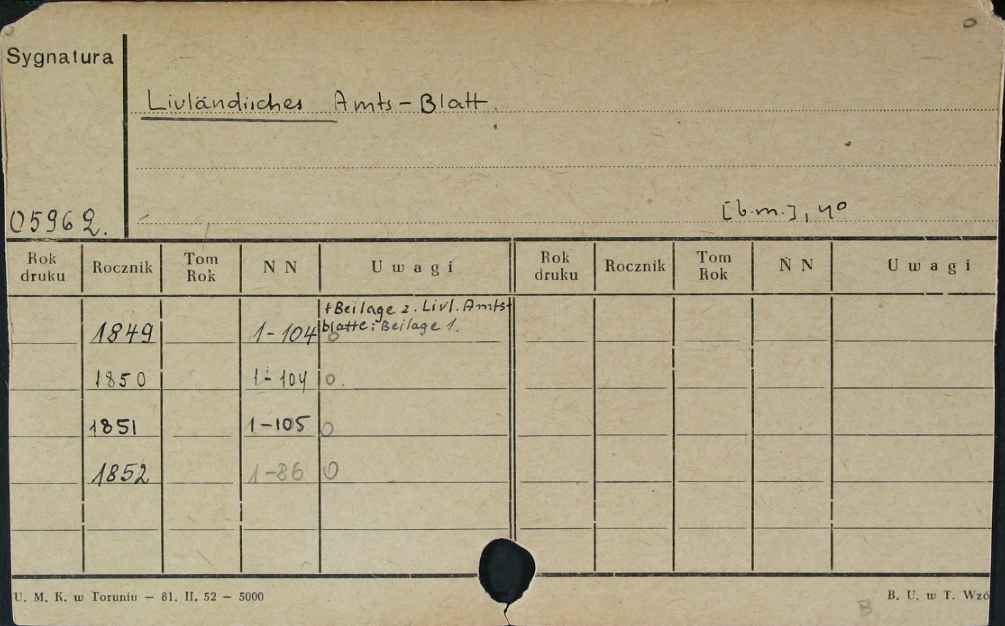 Sygnatura
Livländisches Amts-Blatt.
05962.
[b.m.], 4°
Rok druku Rocznik Tom Rok N N Uwagi Rok druku Rocznik Tom Rok N N Uwagi
+Beilage z. Livl. Amts-
1849 1-104 blatte: Beilage 1. o
1850 1-104 o.
1851 1-105 o
1852 1-86 o
U. M. K. w Toruniu — 81. II. 52 — 5000
B. U. w T. Wzó
B